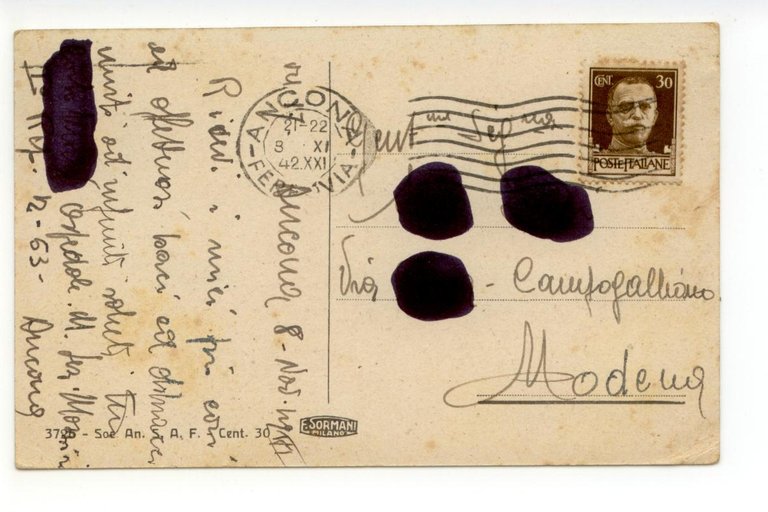 Ancona 8 - Nov. 42 XXI
Ricevi i miei più cari
ed affettuosi baci ed abbracci
uniti ad infiniti saluti tuo
Ospedale M. Sez. Mo
N - 63 - Ancona
ANCONA
21-22
8 XI
42.XXI
FERROVIA
CENT. 30
POSTE ITALIANE
Gent ma Sig na
Via - Campogalliano
Modena
3726 - Soc. An. A. F. - Cent. 30
F. SORMANI
MILANO